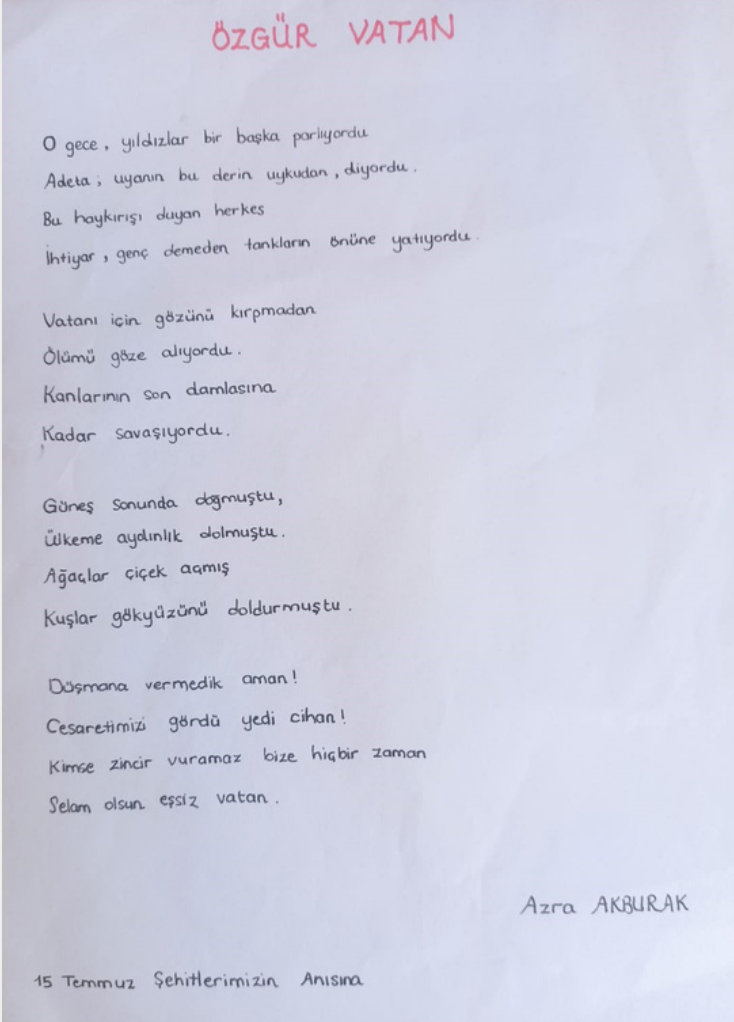 ÖZGÜR VATAN
O gece, yıldızlar bir başka parlıyordu
Adeta; uyanın bu derin uykudan, diyordu.
Bu haykırışı duyan herkes
İhtiyar, genç demeden tankların önüne yatıyordu.
Vatanı için gözünü kırpmadan
Ölümü göze alıyordu.
Kanlarının son damlasına
Kadar savaşıyordu.
Güneş sonunda doğmuştu,
Ülkeme aydınlık dolmuştu.
Ağaçlar çiçek açmış
Kuşlar gökyüzünü doldurmuştu.
Düşmana vermedik aman!
Cesaretimizi gördü yedi cihan!
Kimse zincir vuramaz bize hiçbir zaman
Selam olsun eşsiz vatan.
Azra AKBURAK
15 Temmuz Şehitlerimizin Anısına